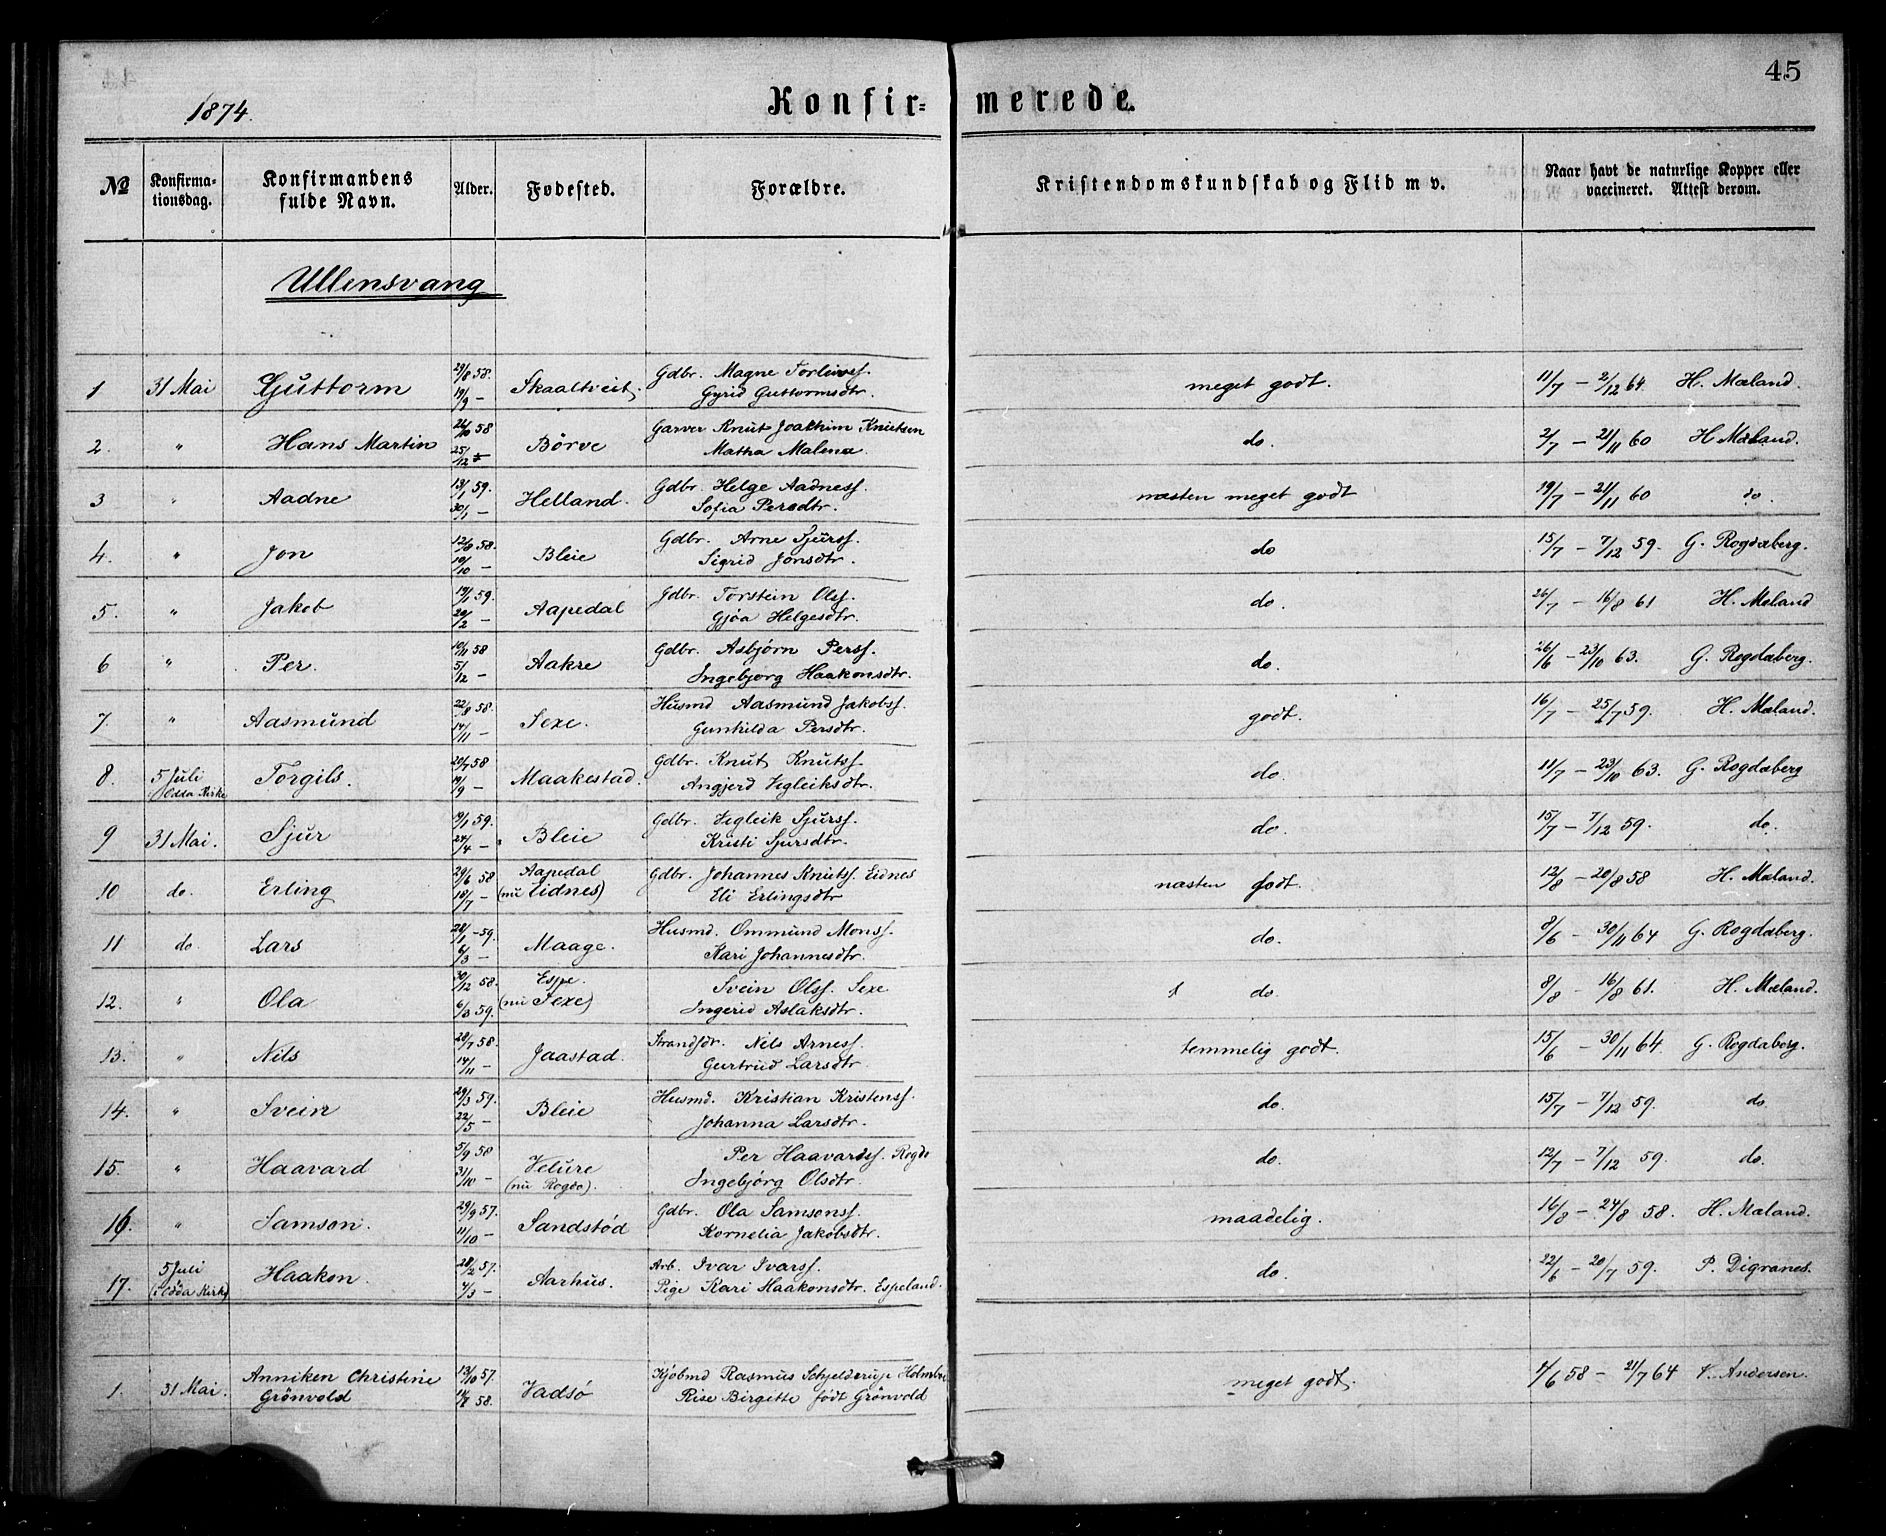 45
1874. Konfir= merede.
№ Konfirma= tionsdag. Konfirmandens fulde Navn. Alder. Fødested. Forældre. Kristendomskundskab og Flid m v. Naar havt de naturlige Kopper eller vaccineret. Attest derom.
Ullensvang
1 31 Mai Guttorm 29/8 58. 19/9 — Skaaltveit. Gdbr. Magne Torleivss. Gyrid Guttormsdtr. meget godt. 11/7 — 2/12 64. H. Mæland.
2. " Hans Martin 58 25/12 Börve Garver Knut Joakhim Knutsen Matha Malena. do. 2/7 — 21/11 60 H Mæland.
3 " Aadne 13/1 59. 30/1 — Helland. Gdbr. Helge Aadness. Sofia Persdtr. næsten meget godt 19/7 — 21/11 60 do.
4. " Jon 12/8 58. 10/10 — Bleie Gdbr. Arne Sjurss. Sigrid Jonsdtr. do 15/7 — 7/12 59. G. Rogdaberg.
5. " Jakob 19/1 59. 20/2 — Aapedal Gdbr. Torstein Olss. Gjøa Helgesdtr. do. 26/7 — 16/8 61 H. Mæland
6 " Per. 10/11 58 5/12 — Aakre Gdbr. Asbjørn Perss. Ingebjørg Haakonsdtr. do. 26/6 — 23/10 63. G. Rogdaberg.
7. " Aasmund 22/8 58. 14/11 — Sexe. Husmd Aasmund Jakobss. Gunhilda Persdtr. godt. 16/7 — 25/7 59. H. Mæland.
8. 5 Juli (i Odda Kirke Torgils. 20/7 58 19/9 — Maakestad. Gdbr. Knut Knutss. Angjerd Vegleiksdtr. do. 11/7 — 23/10 63. G. Rogdaberg
9 31 Mai. Sjur 19/1 59. 24/4 — Bleie Gdbr. Vegleik Sjurss. Kristi Sjursdtr. do. 15/7 — 7/12 59. do.
10 do. Erling 29/6 58 18/7 — Aapedal (nu Eidnes) Gdbr. Johannes Knutss. Eidnes Eli Erlingsdtr næsten godt. 12/8 — 20/8 58 H. Mæland.
11 do. Lars 28/1 — 59. 6/3 — Maage. Husmd. Ommund Monss. Kari Johannesdtr. do. 8/6 — 30/11 64 G. Rogdaberg.
12. " Ola 30/12 58. 6/3 59. Espe. (nu Sexe) Svein Olss. Sexe Ingerid Aslaksdtr. do. 8/8 — 16/8 61. H. Mæland.
13. " Nils 20/7 58. 14/11 — Jaastad. Strandsdr. Nils Arness. Gurtrud Larsdtr. temmelig godt. 15/6 — 30/11 64. G. Rogdaberg.
14. " Svein 29/3 59. 22/5 — Bleie Husmd. Kristian Kristenss. Johanna Larsdtr. do. 15/7 — 7/12 59. do.
15. " Haavard 5/9 58 31/10 — Velure (nu Rogdo). Per Haavardss. Rogdo Ingebjörg Olsdtr. do. 12/7 — 7/12 59. do.
16. " Samson. 29/9 57. 11/10 — Sandstød Gdbr. Ola Samsonss. Kornelia Jakobsdtr. maadelig. 16/8 — 24/8 58. H. Mæland.
17. 5 Juli (i Odda Kirke) Haakon. 28/2 57. 4/3 — Aarhus. Arb. Ivar Ivarss. Pige Kari Haakonsdtr. Espeland. do. 22/6 — 20/7 59. P. Digranes.
1. 31 Mai. Anniken Christine Grönvold 13/10 57. 58. Vadsø Kjøbmd Rasmus Schjelderup Rise Birgitte født Grönvold meget godt. 4/6 58 — 21/7 64 V. Andersen.